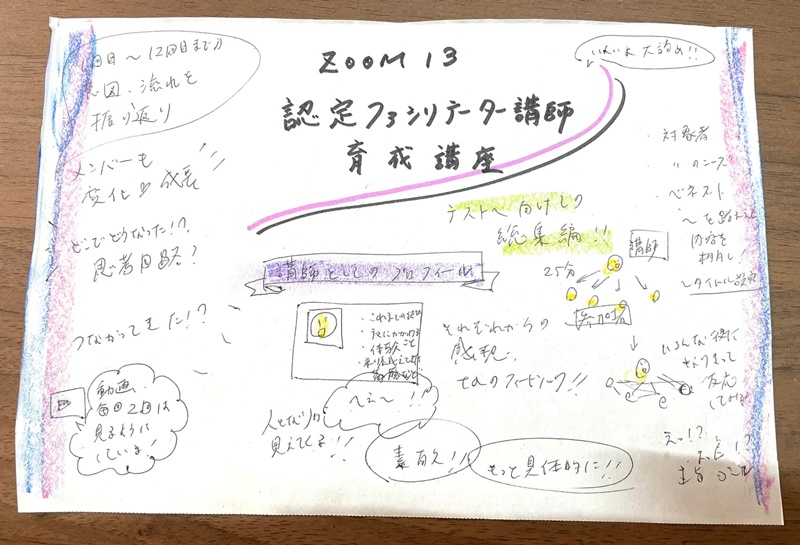 ZOOM 13
認定ファシリテーター講師
育成講座
いよいよ大詰め!!
1回目〜12回目までの
意図・流れを
振り返り
メンバーも
変化や成長
どこでどうなった!?
思考回路?
つながってきた!?
動画
毎回2回は
見るように
している!
テストへ向けての
総集編!!
講師としてのプロフィール
・体験
へぇ〜!!
人となりが
見えてくる!!
素敵!!
もっと具体的に!!
講師
25分
参加者
それぞれからの
感想
フィードバック!!
いろんな役に
なりきって
反応
・対象者
〃のニーズ
・ベネフィット
〜を踏まえ
内容を
〜タイトル設定
えっ!?